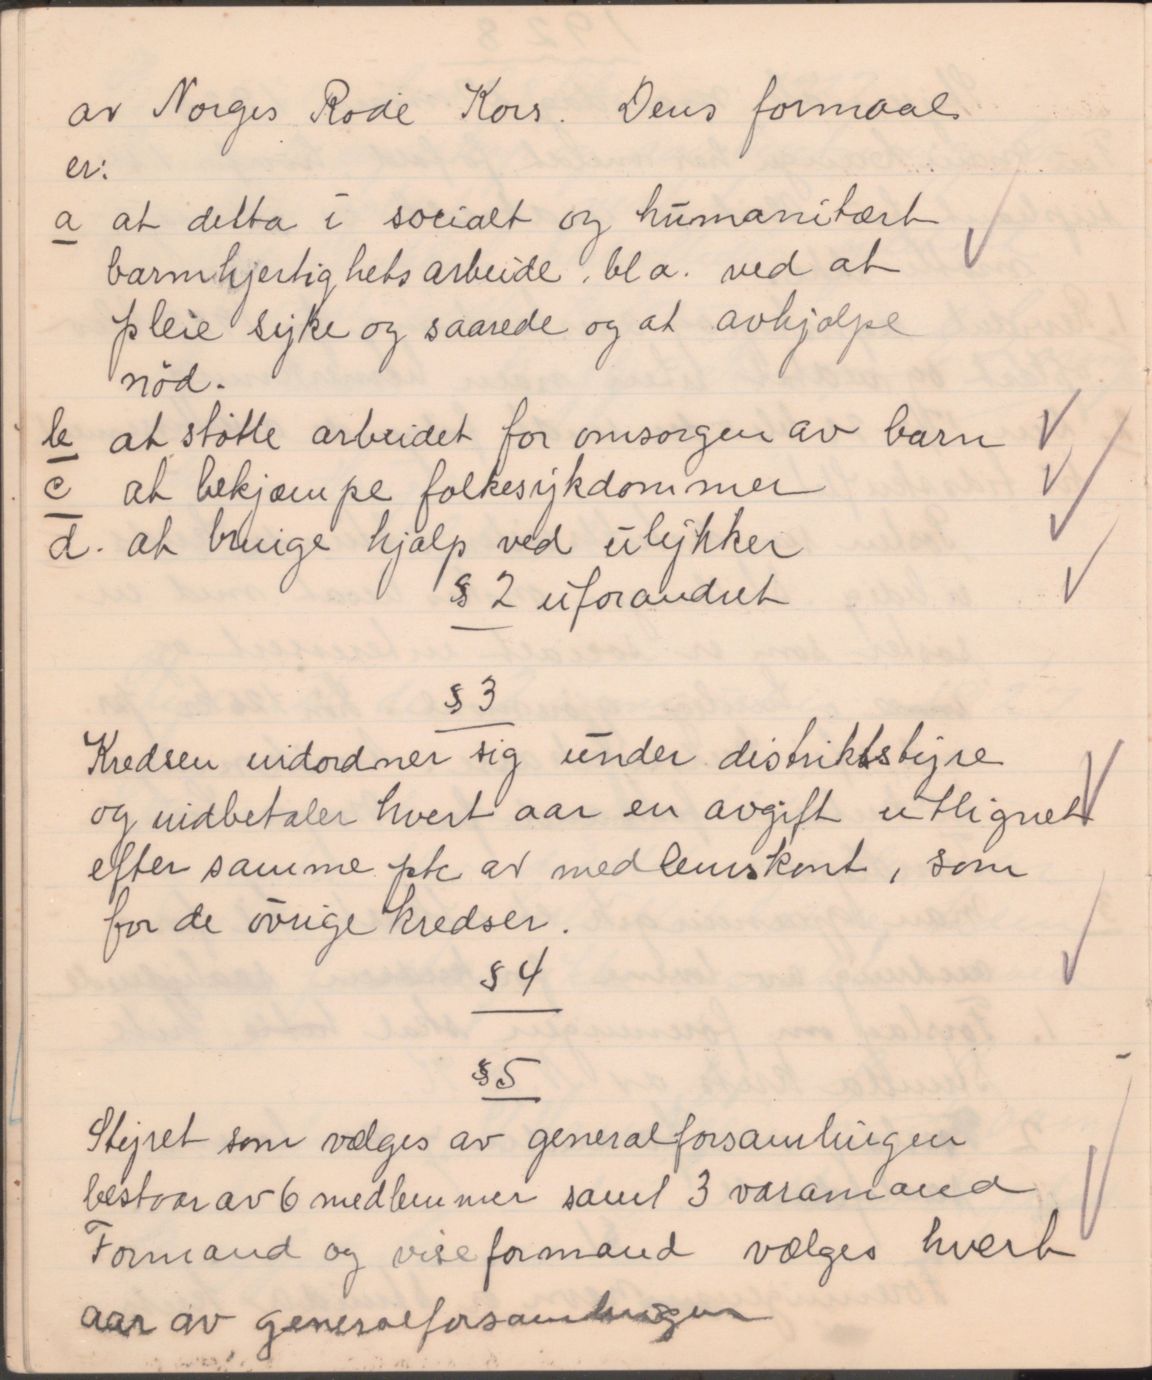 av Norges Røde Kors. Dens formaal
er:
a at delta i socialt og humanitært
barmhjertighetsarbeide, bl a. ved at
pleie syke og saarede og at avhjælpe
nöd.
b at stötte arbeidet for omsorgen av barn
c at bekjæmpe folkesykdommer
d. at bringe hjælp ved ulykker
§ 2 uforandret
§ 3
Kredsen underordner sig under distriktsstyre
og indbetaler hvert aar en avgift utlignet
efter samme pk av medlemskont, som
for de övrige kredser.
§ 4
§ 5
Styret som vælges av generalforsamlingen
bestaar av 6 medlemmer samt 3 varamænd
Formand og viseformand vælges hvert
aar av generalforsamlingen